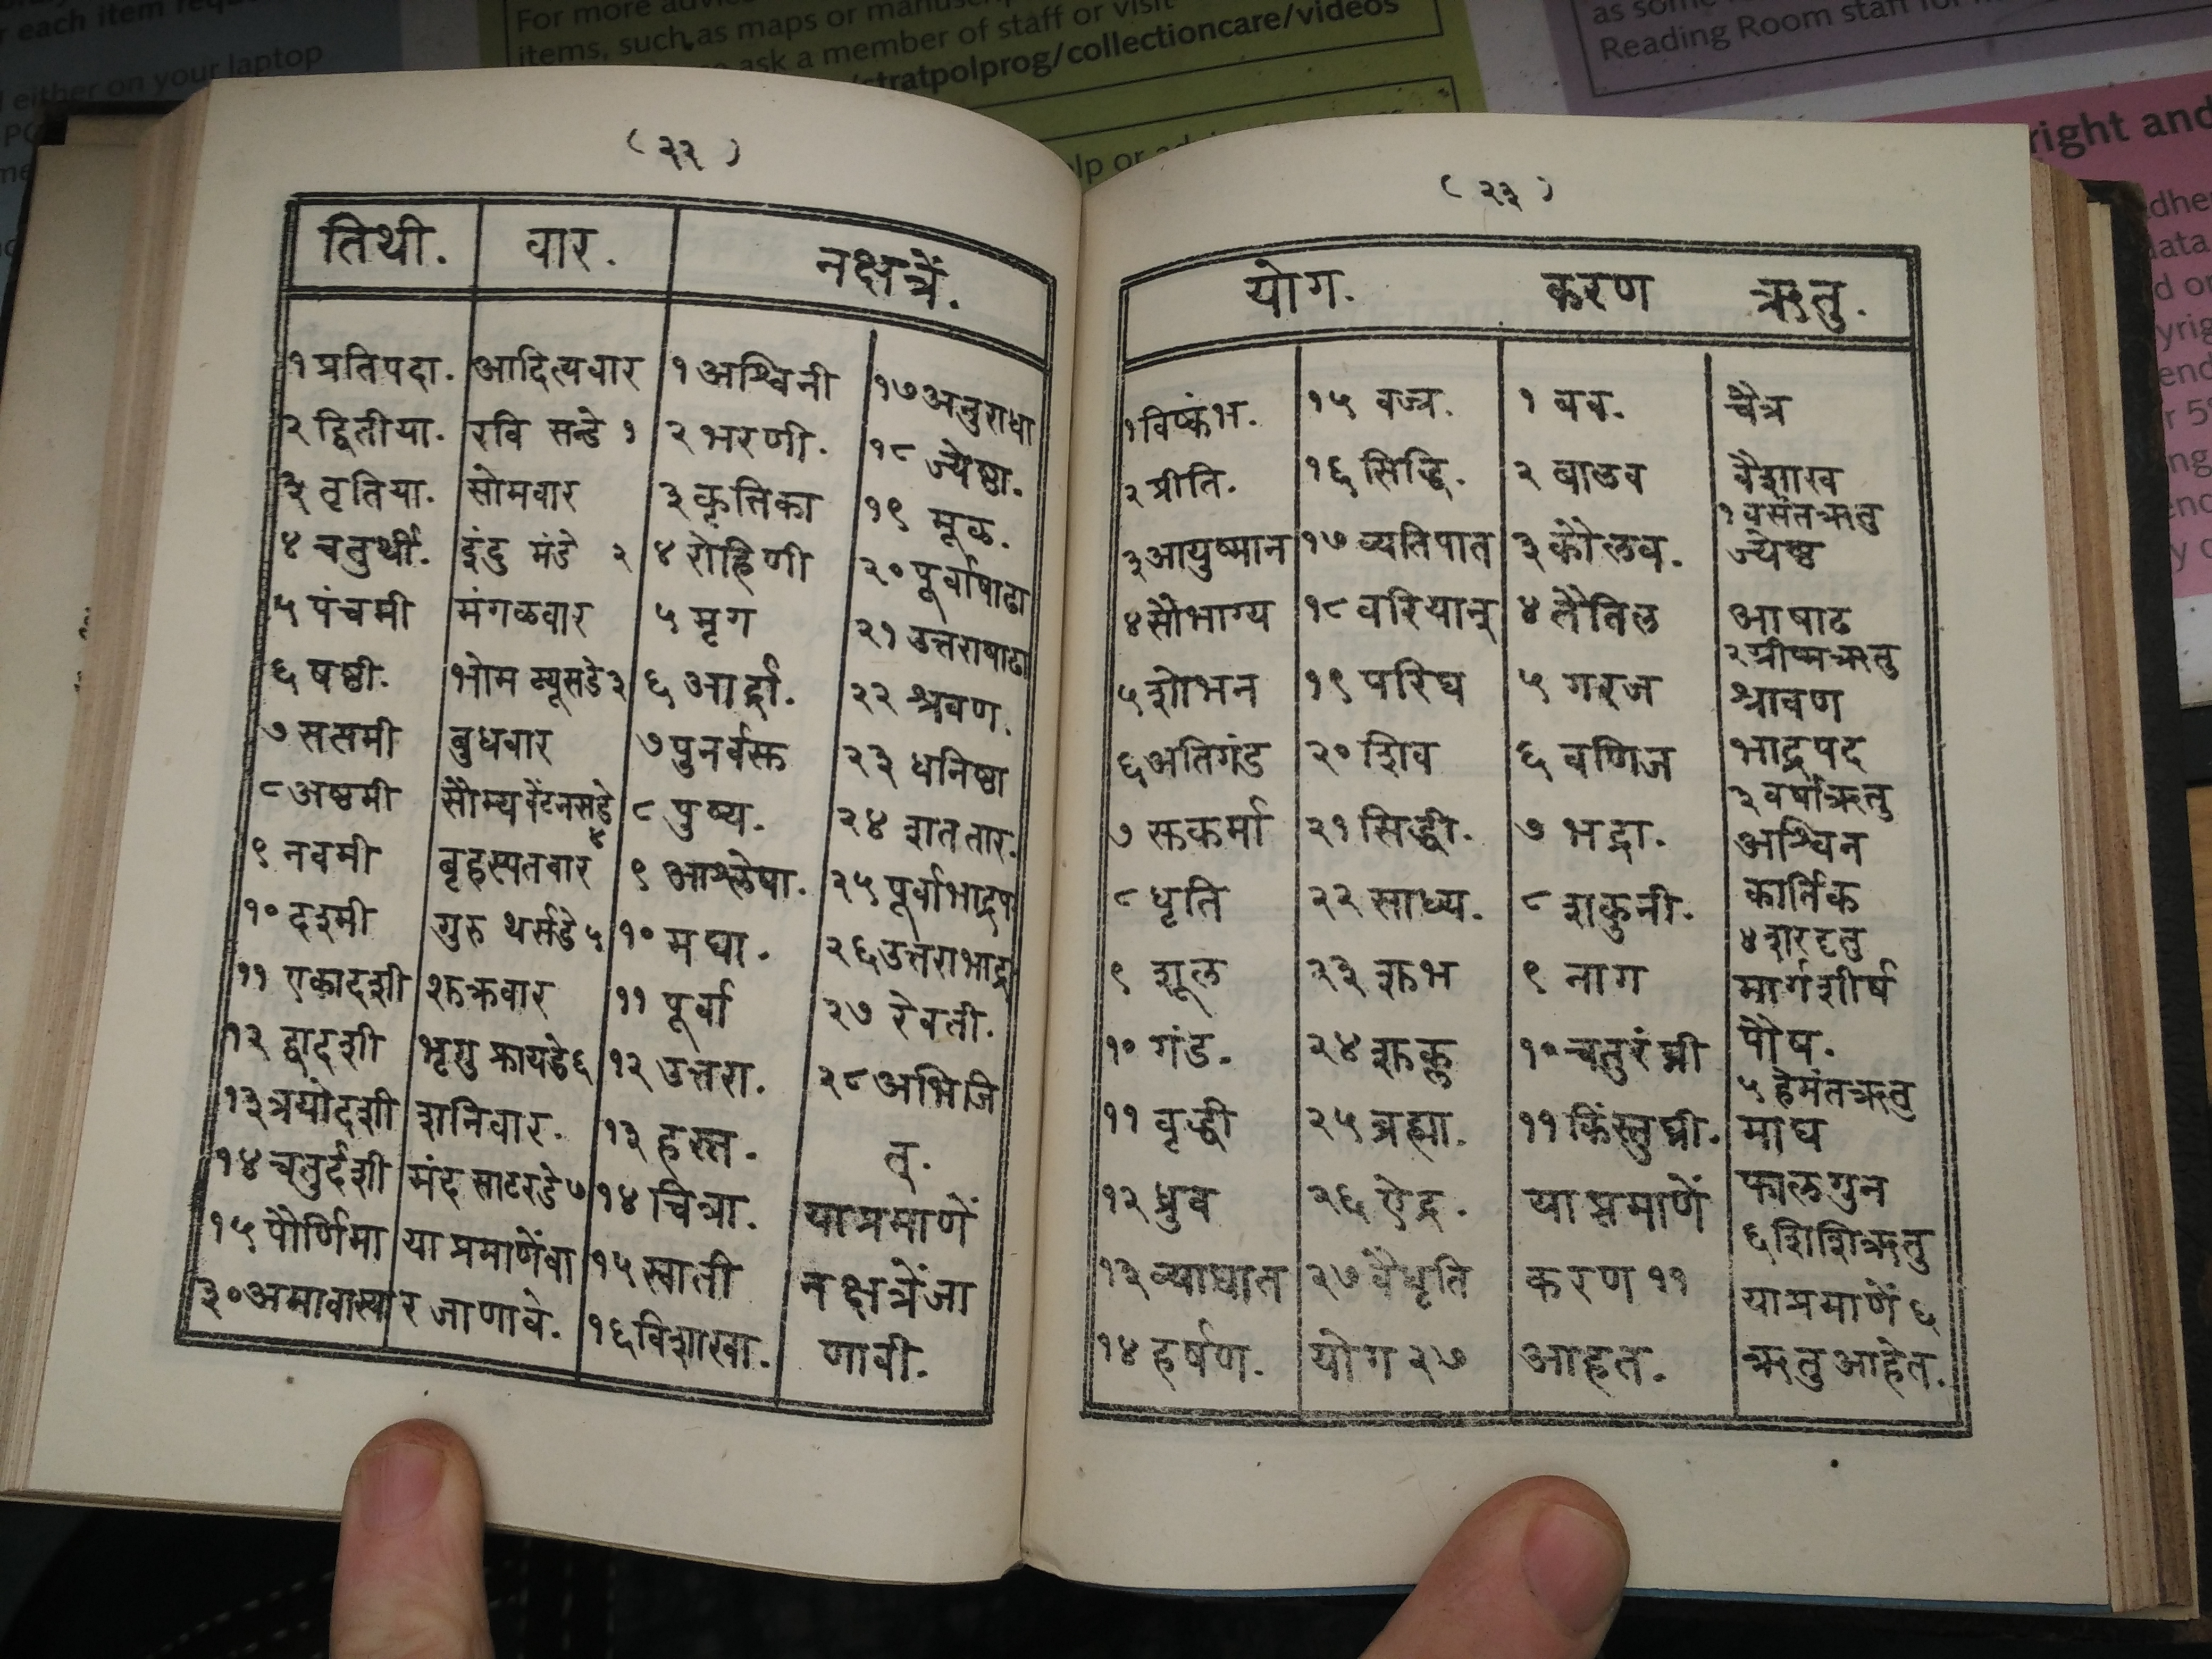 r each item
either on your laptop
For more
items, such as maps or
ask a member of staff or visit
/stratpolprog/collectioncare/videos
Reading Room staff
right and
( २२ )
तिथी. वार. नक्षत्रें.
१ प्रतिपदा. आदित्यवार १ अश्विनी १७ अनुराधा
२ द्वितीया. रवि सन्डे १ २ भरणी. १८ ज्येष्ठा.
३ तृतिया. सोमवार ३ कृत्तिका १९ मूळ.
४ चतुर्थी. इंदु मंडे २ ४ रोहिणी २० पूर्वाषाढा
५ पंचमी मंगळवार ५ मृग २१ उत्तराषाढा
६ षष्ठी. भोम ट्यूसडे ३ ६ आर्द्रा. २२ श्रवण.
७ सप्तमी बुधवार ७ पुनर्वसु २३ धनिष्ठा
८ अष्टमी सौम्य वेंटनसडे ४ ८ पुष्य. २४ शततार.
९ नवमी बृहस्पतवार ९ आश्लेषा. २५ पूर्वाभाद्रप
१० दशमी गुरु थर्सडे ५ १० मघा. २६ उत्तराभाद्रा
११ एकादशी शुक्रवार ११ पूर्वा २७ रेवती.
१२ द्वादशी भृगु फ्रायडे ६ १२ उत्तरा. २८ अभिजि
१३ त्रयोदशी शनिवार. १३ हस्त. त्.
१४ चतुर्दशी मंद साटरडे ७ १४ चित्रा. या प्रमाणें
१५ पौर्णिमा या प्रमाणेंवा १५ स्वाती नक्षत्रें जा
३० अमावास्या र जाणावे. १६ विशाखा. णावी.
( २३ )
योग. करण ऋतु.
१ विष्कंभ. १५ वज्र. १ बव. चैत्र
२ प्रीति. १६ सिद्धि. २ बालव वैशाख
१ वसंतऋतु
३ आयुष्मान १७ व्यतिपात ३ कौलव. ज्येष्ठ
४ सौभाग्य १८ वरियान् ४ तैतिल आषाढ
२ ग्रीष्मऋतु
५ शोभन १९ परिघ ५ गरज श्रावण
६ अतिगंड २० शिव ६ वणिज भाद्रपद
३ वर्षाऋतु
७ सुकर्मा २१ सिद्धी. ७ भद्रा. अश्विन
८ धृति २२ साध्य. ८ शकुनी. कार्तिक
४ शारदृतु
९ शूल २३ शुभ ९ नाग मार्गशीर्ष
१० गंड. २४ शुक्ल १० चतुरंघ्री पौष.
५ हेमंतऋतु
११ वृद्धी २५ ब्रह्मा. ११ किंस्तुघ्नी. माघ
१२ ध्रुव २६ ऐंद्र. या प्रमाणें फालगुन
६ शिशिऋतु
१३ व्याघात २७ वैधृति करण ११ या प्रमाणें ६
१४ हर्षण. योग २७ आहत. ऋतु आहेत.